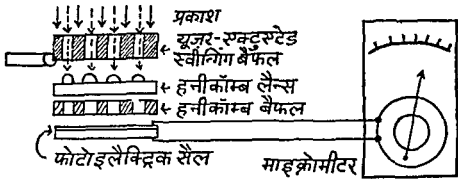 प्रकाश
यूज़र-एक्टुएटेड
स्वीनिंग बैफल
हनीकॉम्ब लैन्स
हनीकॉम्ब बैफल
फोटोइलैक्ट्रिक सैल
माइक्रोमीटर